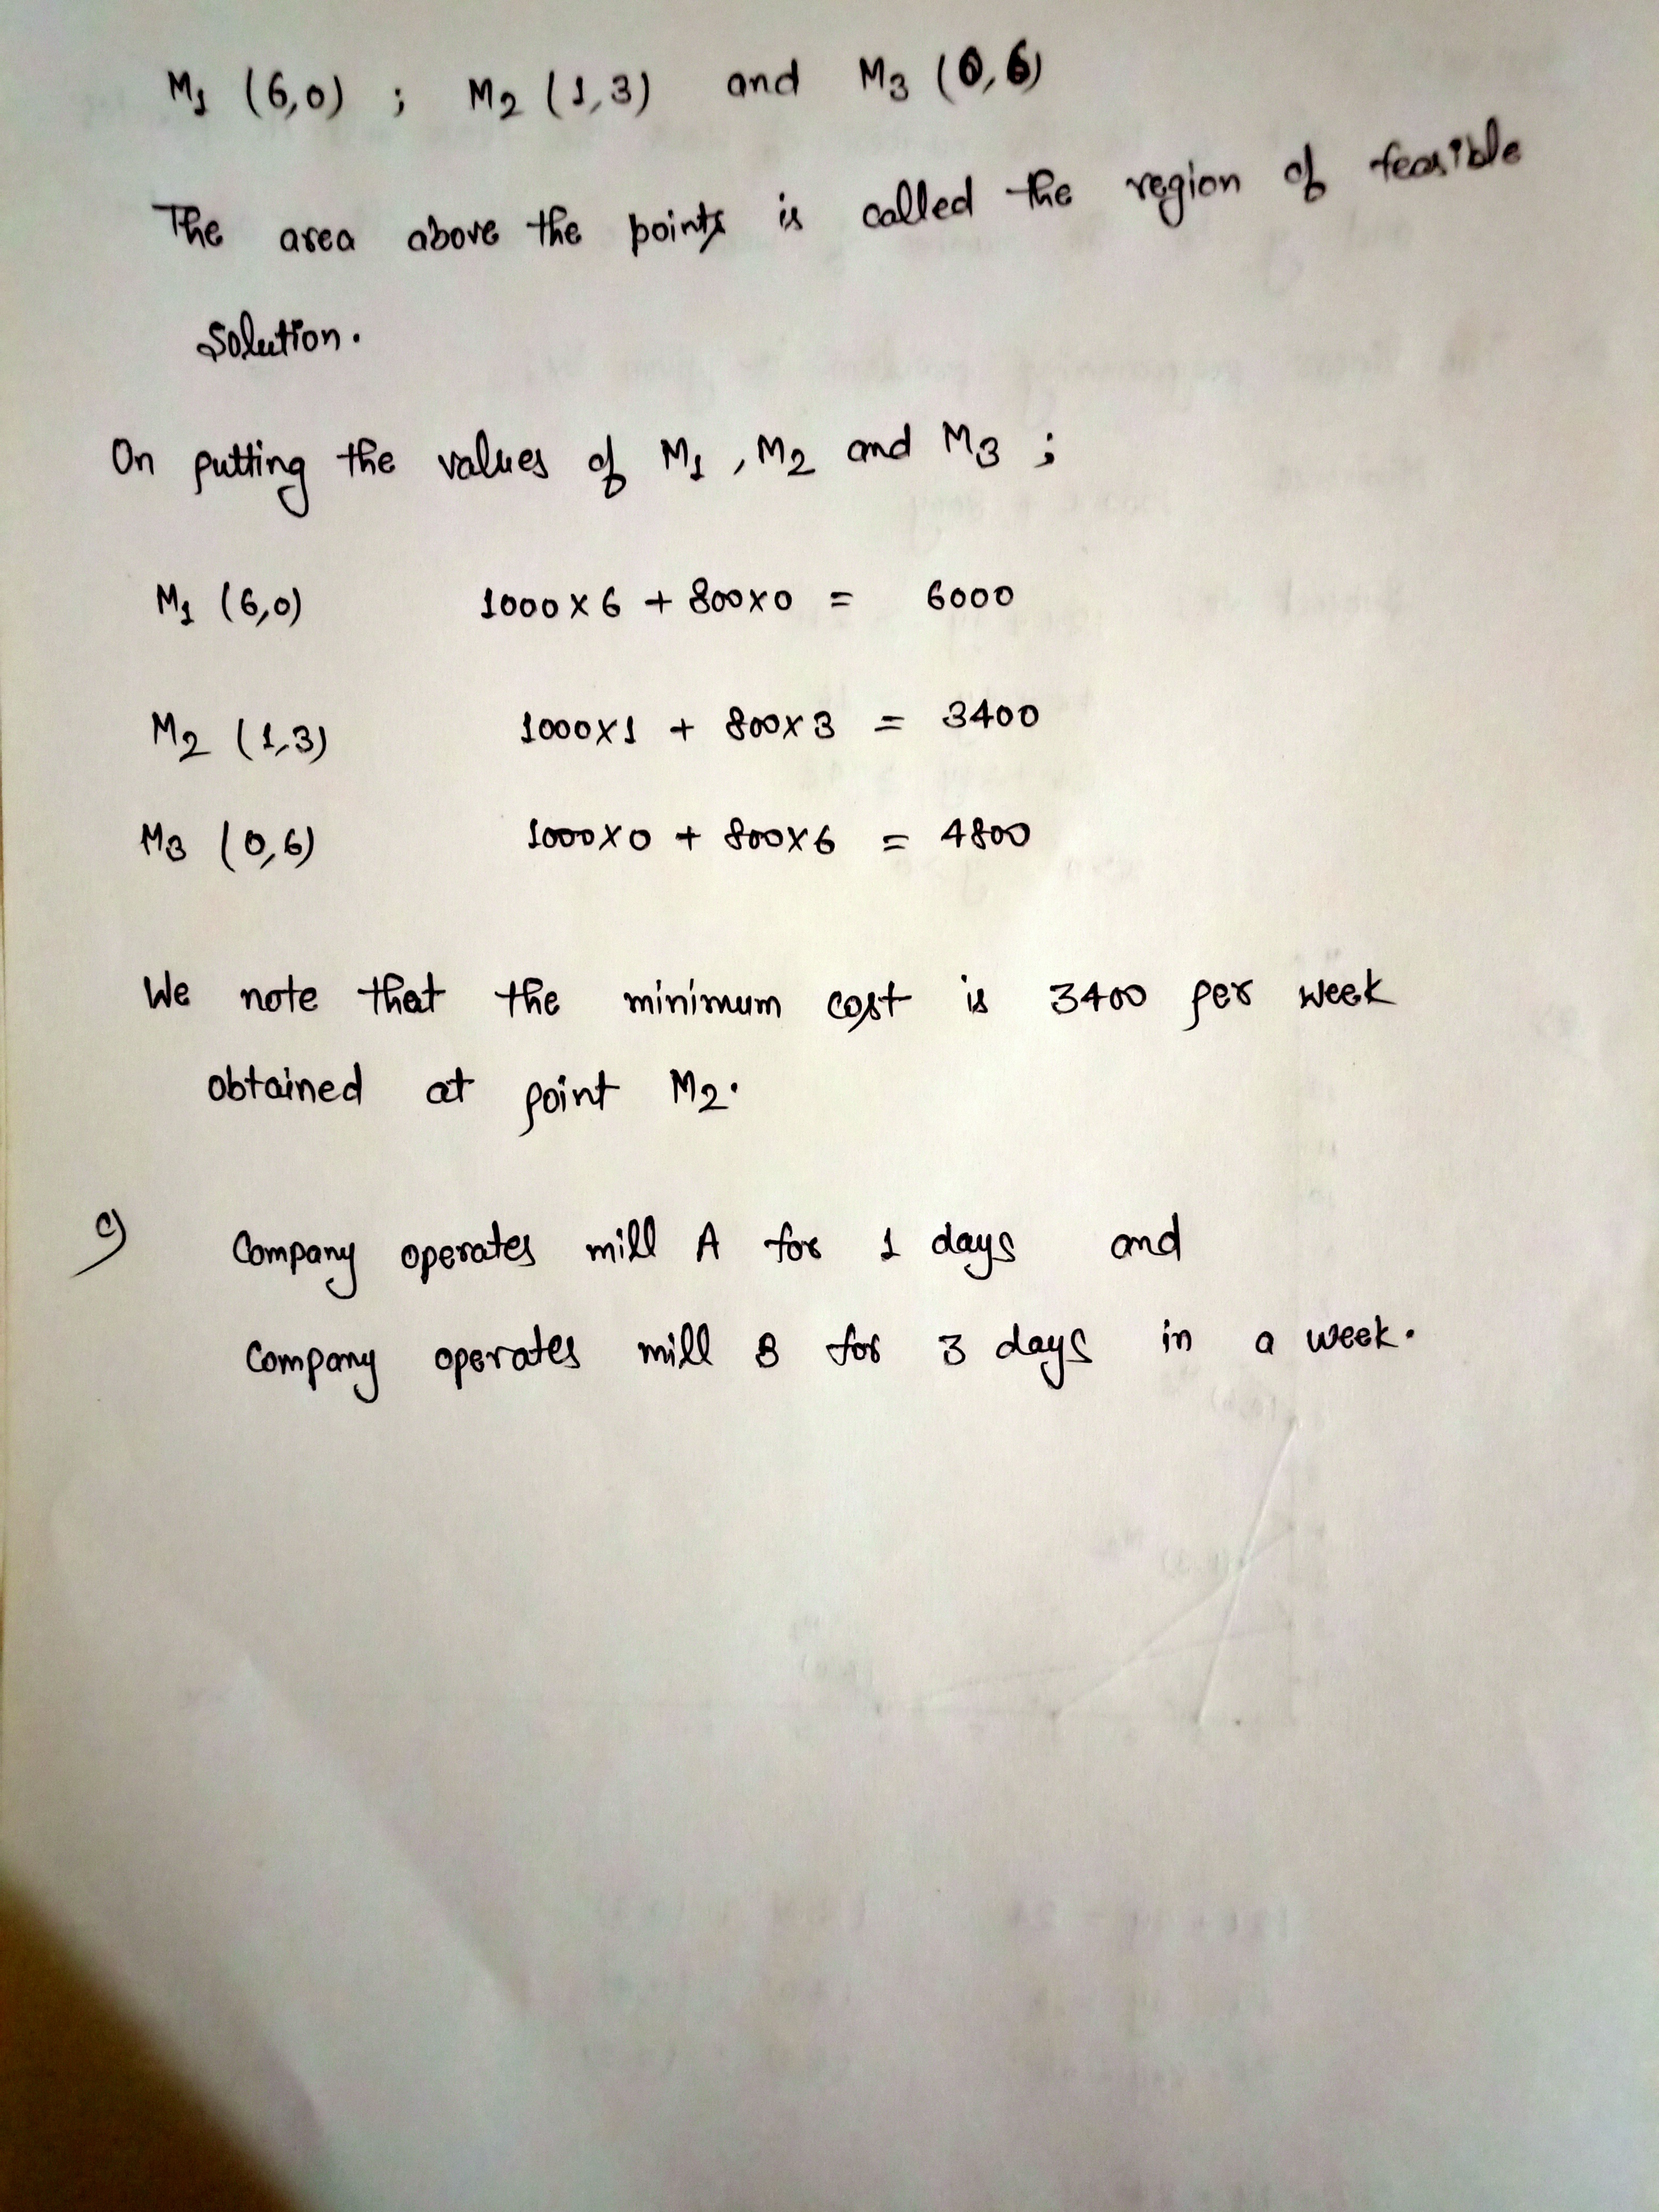 M1 (6,0) ; M2 (1,3) and M3 (0,6)
The area above the points is called the region of feasible
solution.
On putting the values of M1, M2 and M3 ;
M1 (6,0) 1000 x 6 + 800x0 = 6000
M2 (1,3) 1000x1 + 800x3 = 3400
M3 (0,6) 1000x0 + 800x6 = 4800
We note that the minimum cost is 3400 per week
obtained at point M2.
c) Company operates mill A for 1 days and
Company operates mill B for 3 days in a week.